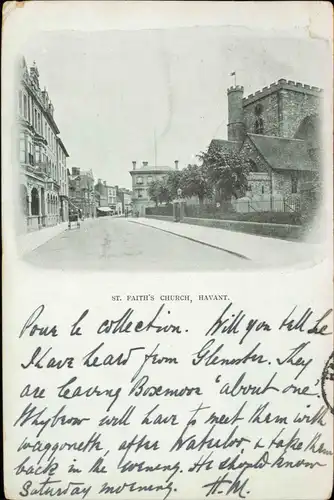 ST. FAITH'S CHURCH, HAVANT.
Pour le collection. Will you tell the
I have heard from Glenster. They
are leaving Boxmoor "about one".
Whybrow will have to meet them with
waggoneth, after Waterloo, & take them
back in the evening. He should know
Saturday morning. H.M.